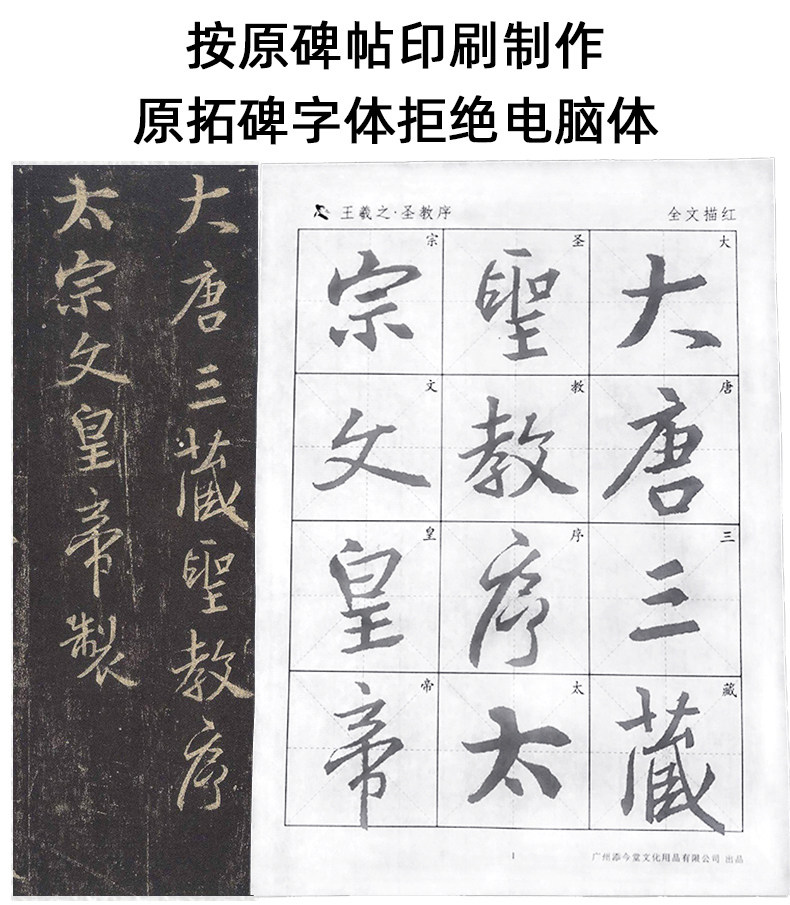 按原碑帖印刷制作
原拓碑字体拒绝电脑体
大唐三藏聖教序
太宗文皇帝製
王羲之·圣教序
全文描红
大
大
唐
唐
三
三
藏
蔵
圣
聖
教
教
序
序
太
太
宗
宗
文
文
皇
皇
帝
帝
1
广州添今堂文化用品有限公司 出品